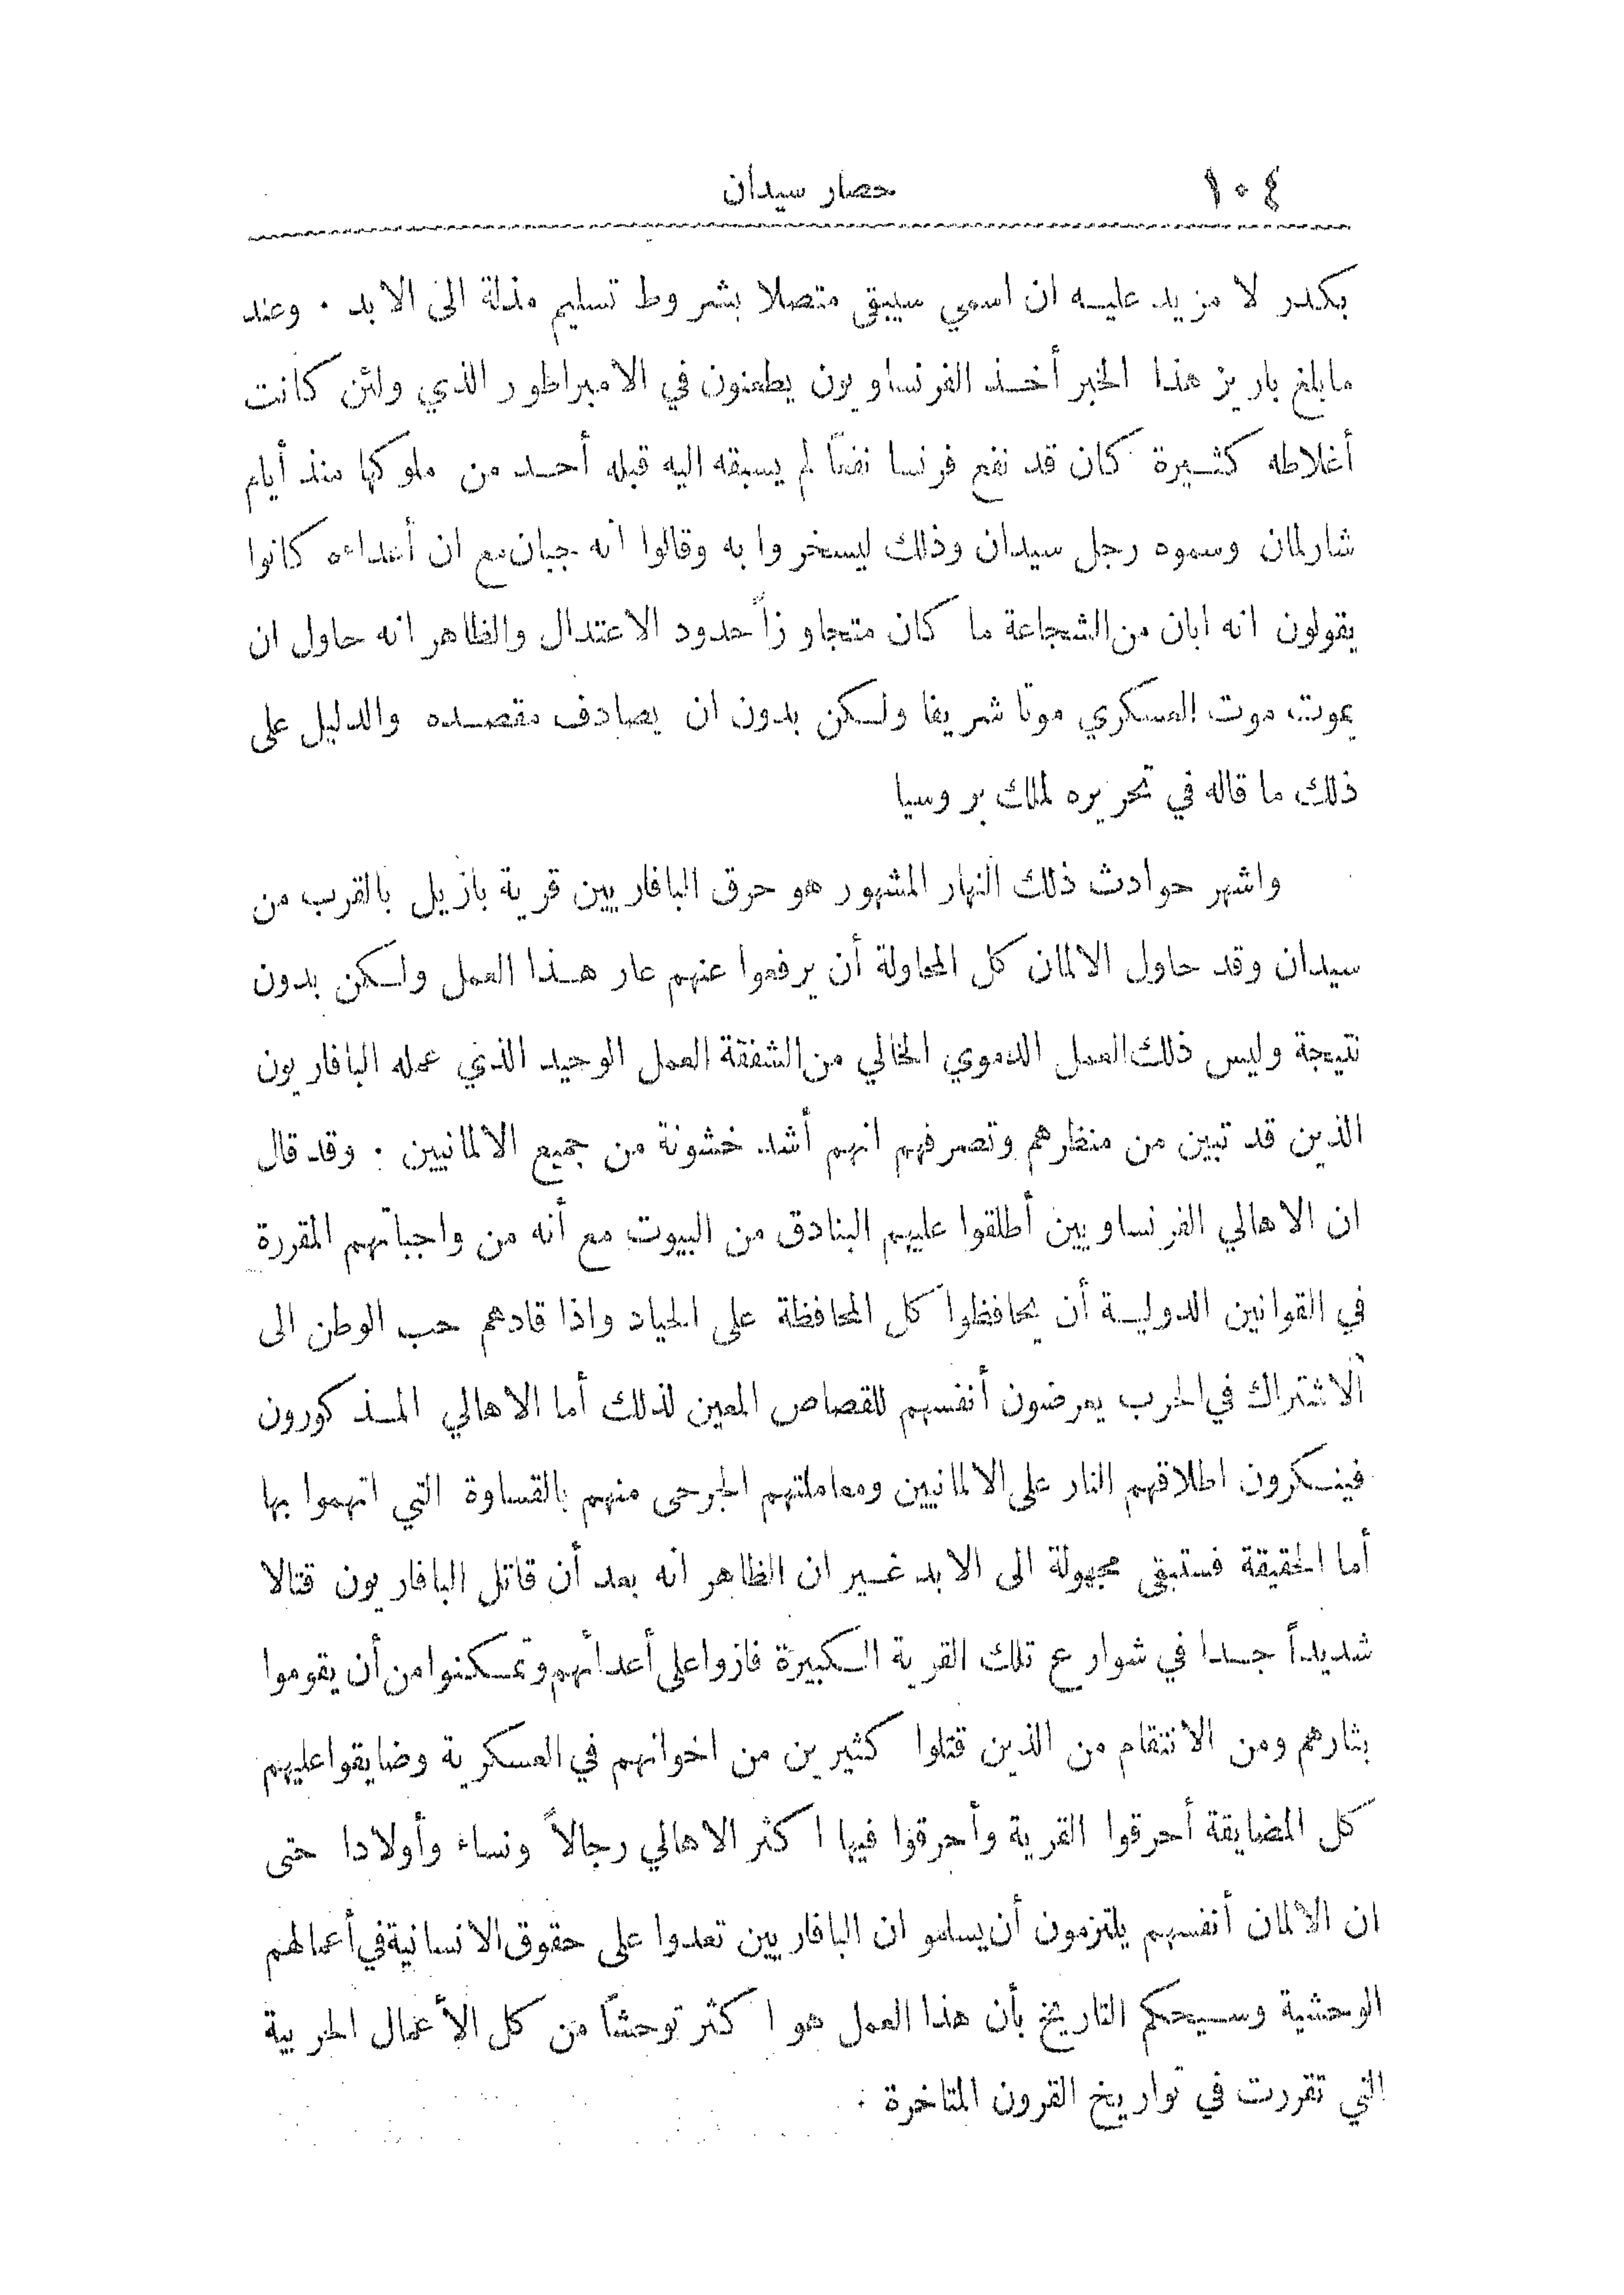 ١٠٤
حصار سيدان
بكدر لا مزيد عليه ان اسمي سيبقى متصلا بشروط تسليم مذلة الى الابد . وعند
مابلغ باريز هذا الخبر أخذ الفرنساويون يطعنون في الامبراطور الذي ولئن كانت
أغلاطه كثيرة كان قد نفع فرنسا نفعاً لم يسبقه اليه قبله أحد من ملوكها منذ أيام
شارلمان وسموه رجل سيدان وذلك ليسخروا به وقالوا انه جبان مع ان أعداءه كانوا
يقولون انه ابان من الشجاعة ما كان متجاوزاً حدود الاعتدال والظاهر انه حاول ان
يموت موت العسكري موتا شريفا ولكن بدون ان يصادف مقصده والدليل على
ذلك ما قاله في تحريره لملك بروسيا
واشهر حوادث ذلك النهار المشهور هو حرق البافاريين قرية بازيل بالقرب من
سيدان وقد حاول الالمان كل المحاولة أن يرفعوا عنهم عار هذا العمل ولكن بدون
نتيجة وليس ذلك العمل الدموي الخالي من الشفقة العمل الوحيد الذي عمله البافاريون
الذين قد تبين من منظرهم وتصرفهم انهم أشد خشونة من جميع الالمانيين . وقد قال
ان الاهالي الفرنساويين أطلقوا عليهم البنادق من البيوت مع أنه من واجباتهم المقررة
في القوانين الدولية أن يحافظوا كل المحافظة على الحياد واذا قادهم حب الوطن الى
الاشتراك في الحرب يعرضون أنفسهم للقصاص المعين لذلك أما الاهالي المذكورون
فينكرون اطلاقهم النار على الالمانيين ومعاملتهم الجرحى منهم بالقساوة التي اتهموا بها
أما الحقيقة فستبقى مجهولة الى الابد غير ان الظاهر انه بعد أن قاتل البافاريون قتالا
شديداً جدا في شوارع تلك القرية الكبيرة فازوا على أعدائهم وتمكنوا من أن يقوموا
بثارهم ومن الانتقام من الذين قتلوا كثيرين من اخوانهم في العسكرية وضايقوا عليهم
كل المضايقة أحرقوا القرية وأحرقوا فيها اكثر الاهالي رجالاً ونساء وأولادا حتى
ان الالمان أنفسهم يلتزمون أن يسلمو ان البافاريين تعدوا على حقوق الانسانية في أعمالهم
الوحشية وسيحكم التاريخ بأن هذا العمل هو اكثر توحشاً من كل الأعمال الحربية
التي تقررت في تواريخ القرون المتاخرة .